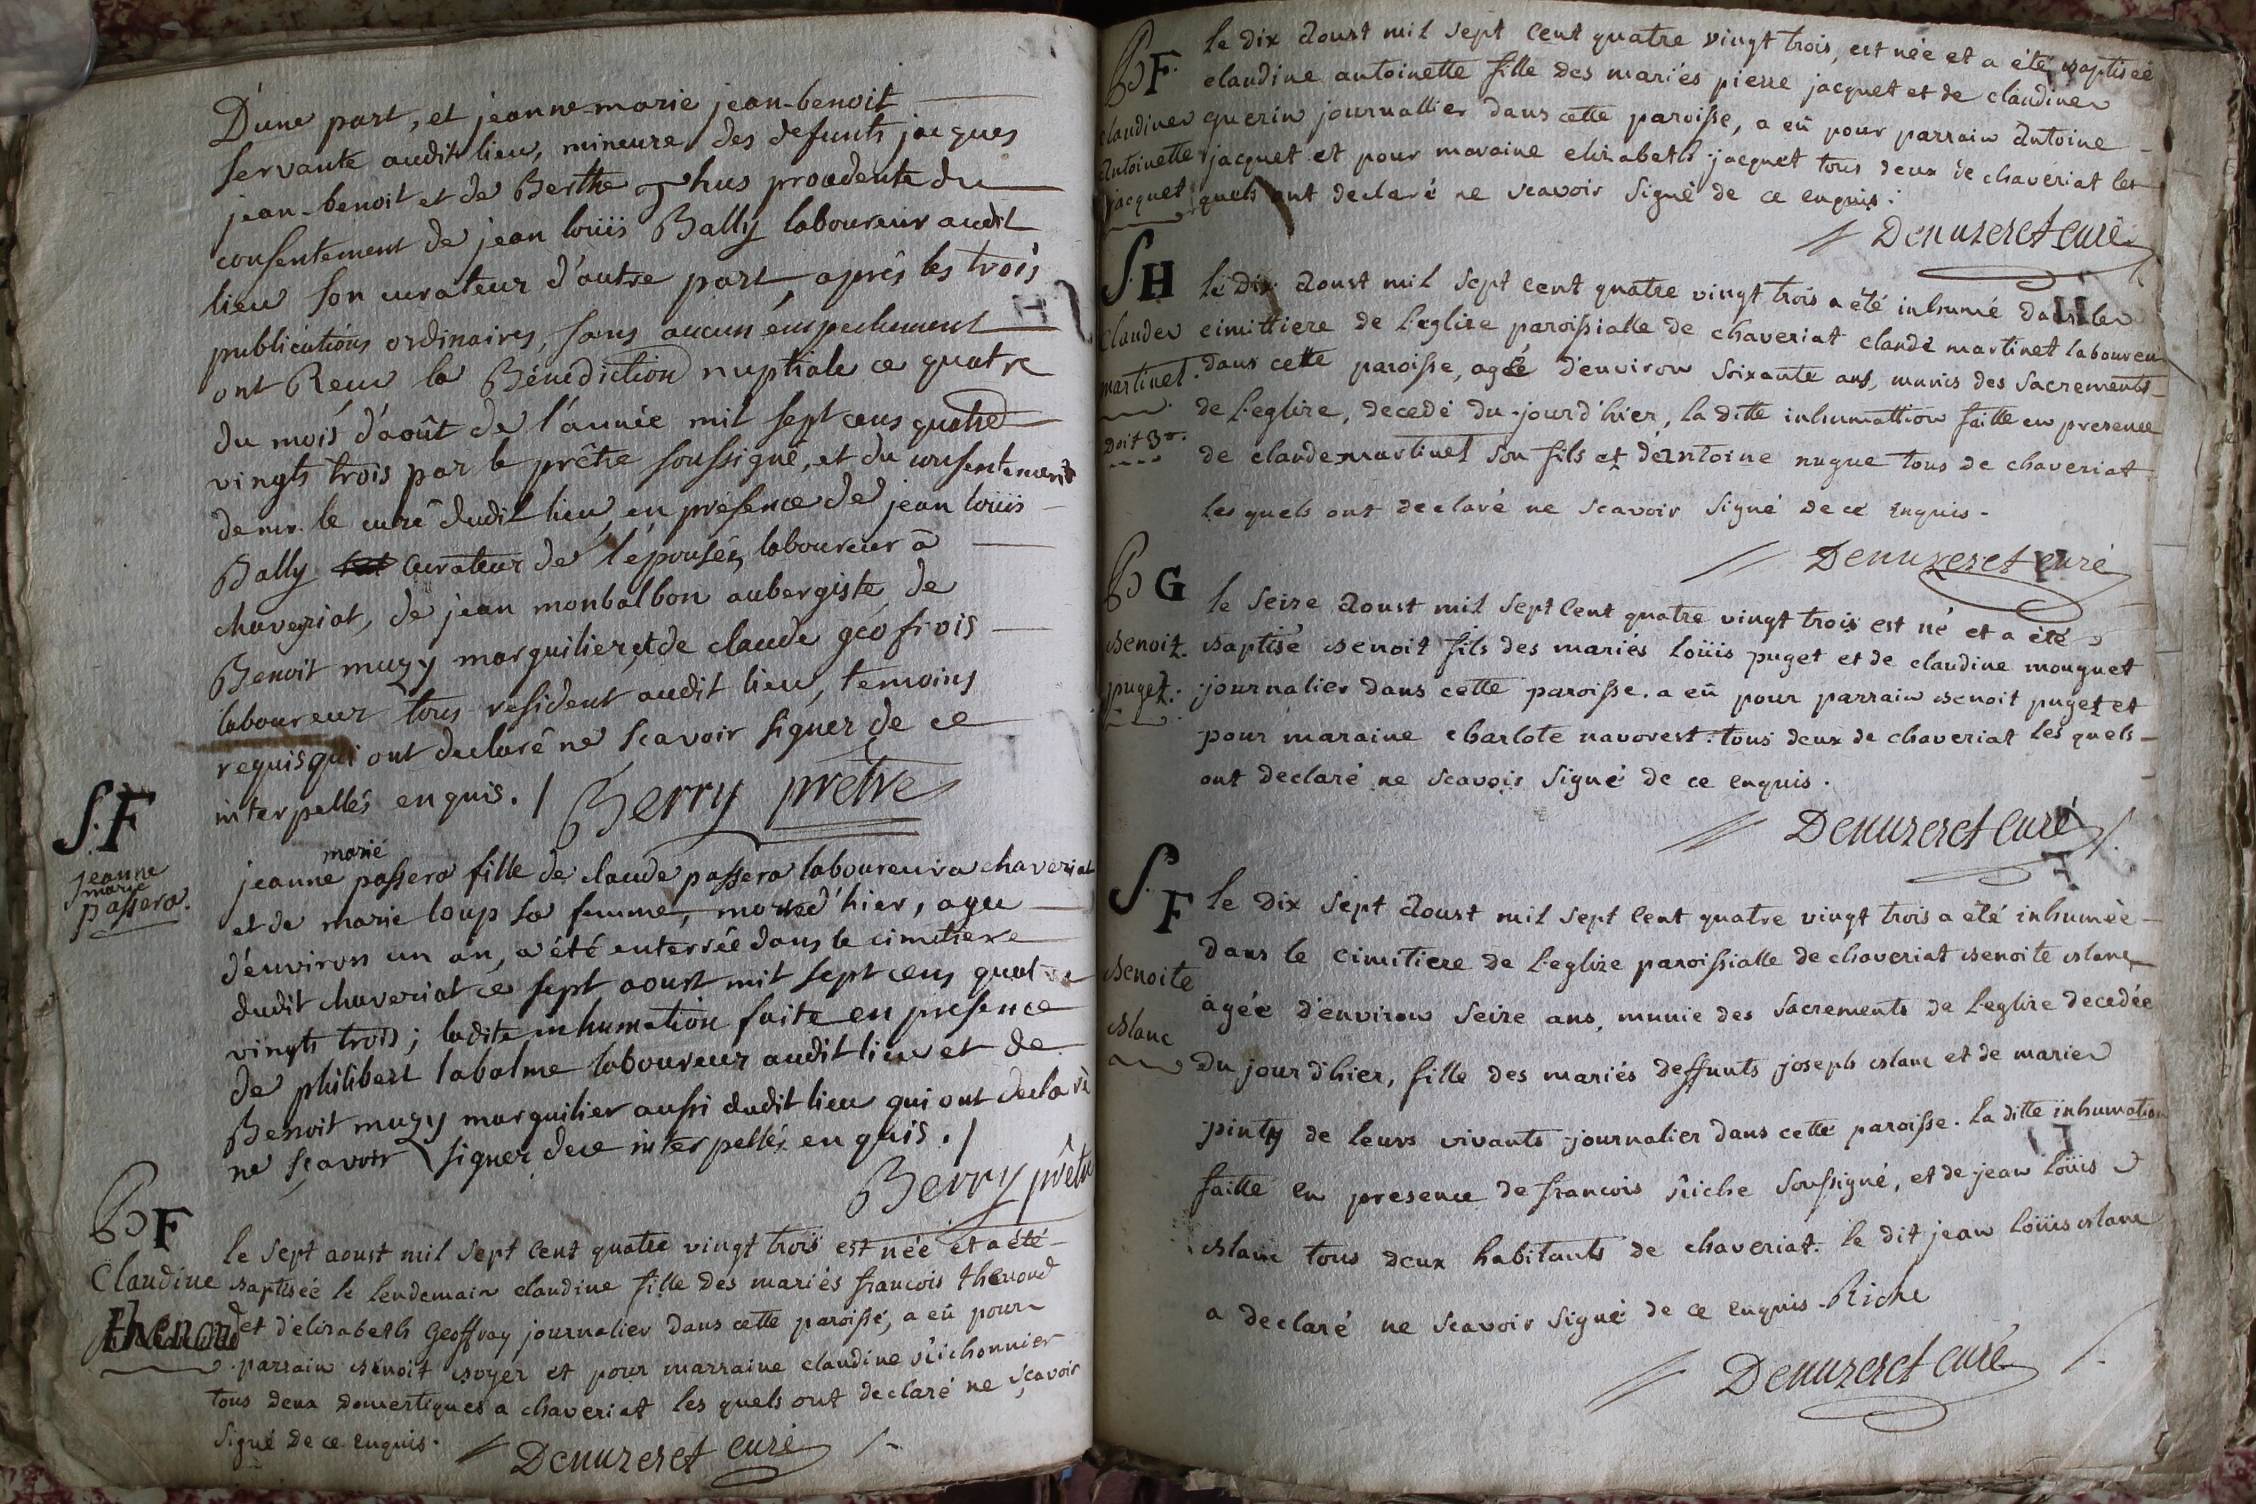 D'une part, et jeanne-marie jean-benoit
servante audit lieu, mineure des defunts jacques
jean-benoit et de Berthe thus procedente du
consentement de jean loüis Bally laboureur audit
lieu son curateur d'autre part, aprés les trois
publications ordinaires, sans aucun empechement
ont Recu la Bénédiction nuptiale ce quatre
du mois d'août de l'année mil sept cens quatre
vingts trois par le prêtre soussigné, et du consentement
de mr. le curé dudit lieu, en presence de jean loüis
Bally curateur de l'épousée, laboureur à
chaveriat, de jean monbalbon aubergiste, de
Benoit muzy marguilier, et de claude géofrois
laboureur tous resident audit lieu, temoins
requis qui ont declaré ne scavoir signer de ce
interpellés enquis. / Berry prêtre
S. F
jeanne
marie
passera.
marie
jeanne passera fille de claude passera laboureur a chaveriat
et de marie loup sa femme, morte d'hier, agee
d'environ un an, a été enterrée dans le cimetiere
dudit chaveriat ce sept aoust mil sept cens quatre
vingts trois; ladite inhumation faite en presence
de philibert labalme laboureur audit lieu et de
Benoit muzy marguilier aussi dudit lieu qui ont declaré
ne sçavoir signer de ce interpellés enquis. /
Berry prêtre
B F
Claudine
thenoud
le sept aoust mil sept cent quatre vingt trois est née et a été
baptisée le lendemain claudine fille des mariés francois thenoud
et d'elizabeth Geoffray journalier dans cette paroisse, a eû pour
parrain benoit boyer et pour marraine claudine bichonnier
tous deux domestiques a chaveriat les quels ont declaré ne sçavoir
signé de ce enquis.
Denuzeret curé
B F
claudine
antoinette
jacquet
le dix doust mil sept cent quatre vingt trois, est née et a été baptisée
claudine antoinette fille des mariés pierre jacquet et de claudine
guerin journallier dans cette paroisse, a eû pour parrain antoine
jacquet et pour maraine elizabeth jacquet tous deux de chaveriat les
quels ont declaré ne scavoir signé de ce enquis.
Denuzeret curé
S. H
claude
martinet.
doit 3
le dix doust mil sept cent quatre vingt trois a été inhumé dans le
cimittiere de l'eglize paroissialle de chaveriat claude martinet laboureur
dans cette paroisse, agée d'environ soixante ans, munis des sacrements
de l'eglize, decedé du jour d'hier, la ditte inhumattion faitte en presence
de claude martinet son fils et d'antoine nugue tous de chaveriat
les quels ont declaré ne scavoir signé de ce enquis.
Denuzeret curé
B G
benoit
puget.
le seize doust mil sept cent quatre vingt trois est né et a été
baptisé benoit fils des mariés loüis puget et de claudine mouguet
journalier dans cette paroisse. a eû pour parrain benoit puget et
pour maraine charlote navorest. tous deux de chaveriat les quels
ont declaré ne scavoir signé de ce enquis.
Denuzeret curé
S. F
benoite
blanc
le dix sept doust mil sept cent quatre vingt trois a été inhumée
dans le cimitiere de l'eglize paroissialle de chaveriat benoite blanc
agée d'environ seize ans, munie des sacrements de l'eglize decedée
du jour d'hier, fille des mariés deffunts joseph blanc et de marie
pinty de leurs vivants journalier dans cette paroisse. la ditte inhumation
faitte en presence de francois riche soussigné, et de jean loüis
blanc tous deux habitants de chaveriat. le dit jean loüis blanc
a declaré ne scavoir signé de ce enquis. Riche
Denuzeret curé